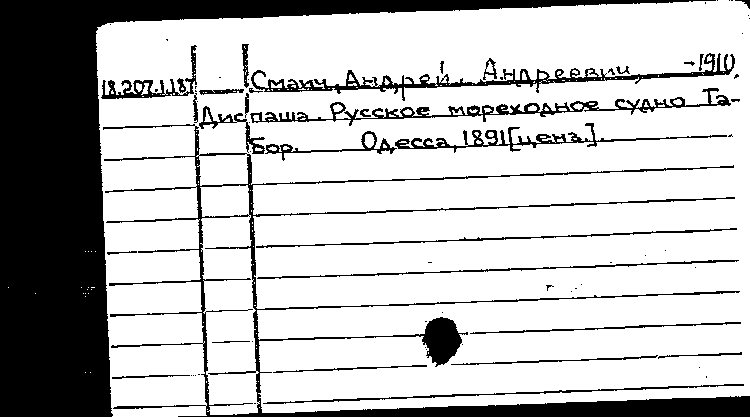 18.207.1.187 Смаич, Андрей Андреевич, -1910.
Диспаша. Русское мореходное судно Та-
бор. Одесса, 1891[ценз.].